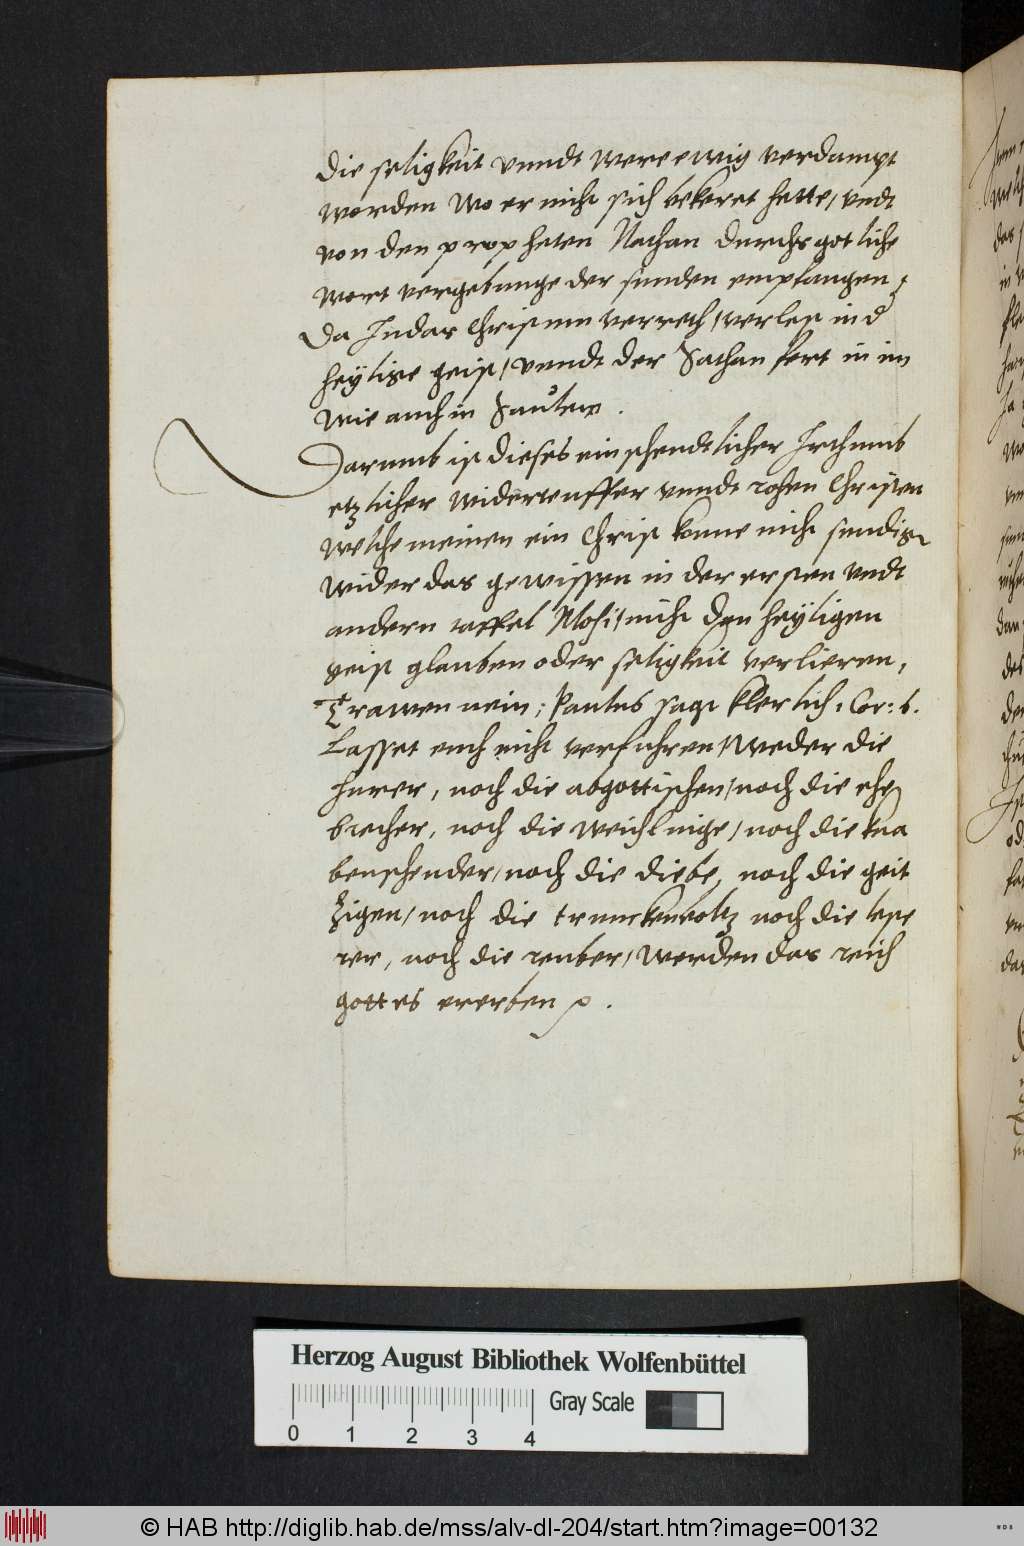 die seligkeit vnndt were ewig verdampt
worden wo er nicht sich bekeret hette, vndt
von den propheten Nathan durchs gotliche
wort vergebunge der sunden empfangen,
Da Judas Christum verreth, verlest in d
heylige geist, vnndt der Sathan fert in im
wie auch in Saulem.
Darumb ist dieses ein schendtlicher Irthumb
etzlicher widerteuffer vnndt rohen Christen
welche meinen ein Christ konne nicht sundig
wider das gewissen in der ersten vndt
andern taffel Mosi, nicht den heyligen
geist glauben oder seligkeit verlieren,
Trawen nein; Paulus sagt klerlich 1 Cor: 6.
Lasset euch nicht verfuhren, weder die
hurer, noch die abgottischen, noch die ehe
brecher, noch die weichlinge, noch die kna
benschender, noch die diebe, noch die geit
zigen, noch die trunckenboltz noch die leste
rer, noch die reuber, werden das reich
gottes ererben
Herzog August Bibliothek Wolfenbüttel
Gray Scale
0 1 2 3 4
© HAB http://diglib.hab.de/mss/alv-dl-204/start.htm?image=00132